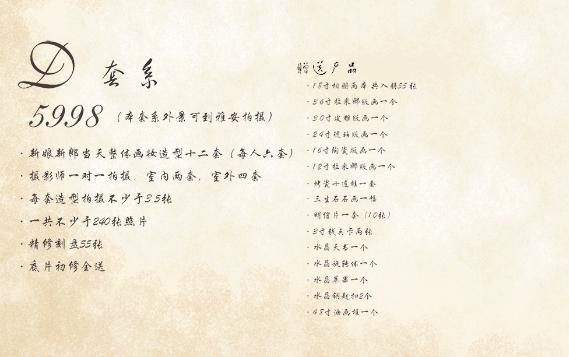 D 套系
5998 (本套系外景可到雅安拍摄)
· 新娘新郎当天整体画妆造型十二套 (每人六套)
· 摄影师一对一拍摄. 室内两套. 室外四套
· 每套造型拍摄不少于35张
· 一共不少于240张照片
· 精修刻盘55张
· 底片初修全送
赠送产品
· 18寸相册两本共入册55张
· 36寸拉米娜版画一个
· 30寸皮雅版画一个
· 24寸琥珀版画一个
· 16寸陶瓷版画一个
· 12寸拉米娜版画一个
· 烤瓷十连挂一套
· 三生石石画一幅
· 明信片一套 (10张)
· 3寸钱夹卡两张
· 水晶天书一个
· 水晶旋转体一个
· 水晶苹果一个
· 水晶钥匙扣2个
· 48寸油画挂一个